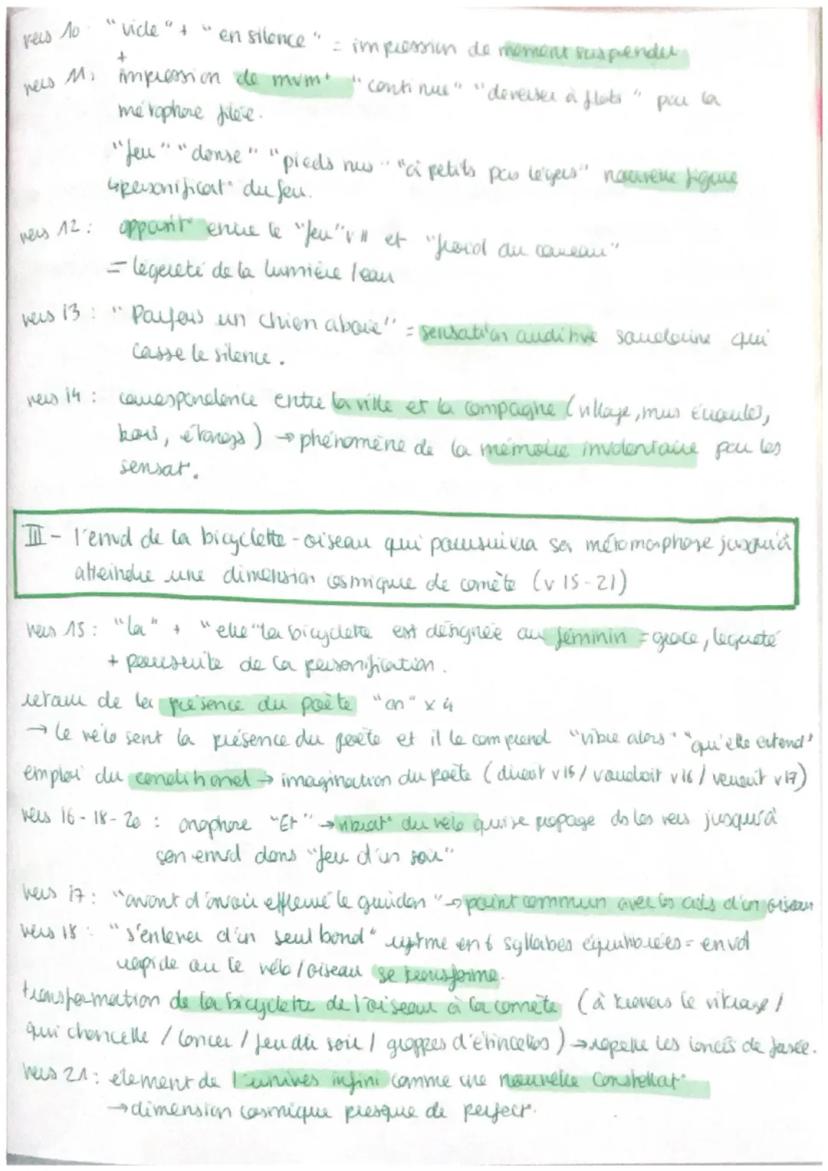 vers 10 "vide" + "en silence" = impression de moment suspendu
+
vers 11: impression de mvmt "continue" "déverser à flots" par la
métaphore filée.
"feu" "danse" "pieds nus" "à petits pas légers" nouvelle figure
↳ personnificat° du feu.
vers 12: opposit° entre le "feu" v 11 et "froid du carreau"
= légereté de la lumière/eau
vers 13: "Parfois un chien aboie" = sensation auditive soudaine qui
casse le silence.
vers 14: correspondence entre la ville et la campagne (village, murs écroulés,
bois, étangs) → phénomène de la mémoire involontaire par les
sensat°.
III - l'envol de la bicyclette-oiseau qui poursuivra sa métamorphose jusqu'à
atteindre une dimension cosmique de comète (v 15-21)
vers 15: "la" + "elle" la bicyclette est désignée au féminin = grace, légereté
+ poursuite de la personnification.
retour de la présence du poète "on" x 4
→ le vélo sent la présence du poète et il le comprend "vibre alors" "qu'elle entend"
emploi du conditionnel → imagination du poète (dirait v15 / voudrait v16 / venait v17)
vers 16-18-20: anaphore "Et" → vibrat° du vélo qui se propage ds les vers jusqu'à
son envol dans "feu d'un soir"
vers 17: "avant d'avoir effleuré le guidon" → point commun avec les ails d'un oiseau
vers 18: "s'enlever d'un seul bond" rytme en 6 syllabes équilibrées = envol
rapide où le vélo/oiseau se transforme.
transformation de la bicyclette de l'oiseau à la comète (à travers le vitrage /
qui chancelle / lancer / feu du soir / grappes d'étincelles) → rapelle les lancés de fusée.
vers 21: élement de l'univers infini comme une nouvelle Constellat°
→ dimension cosmique presque de perfect°.